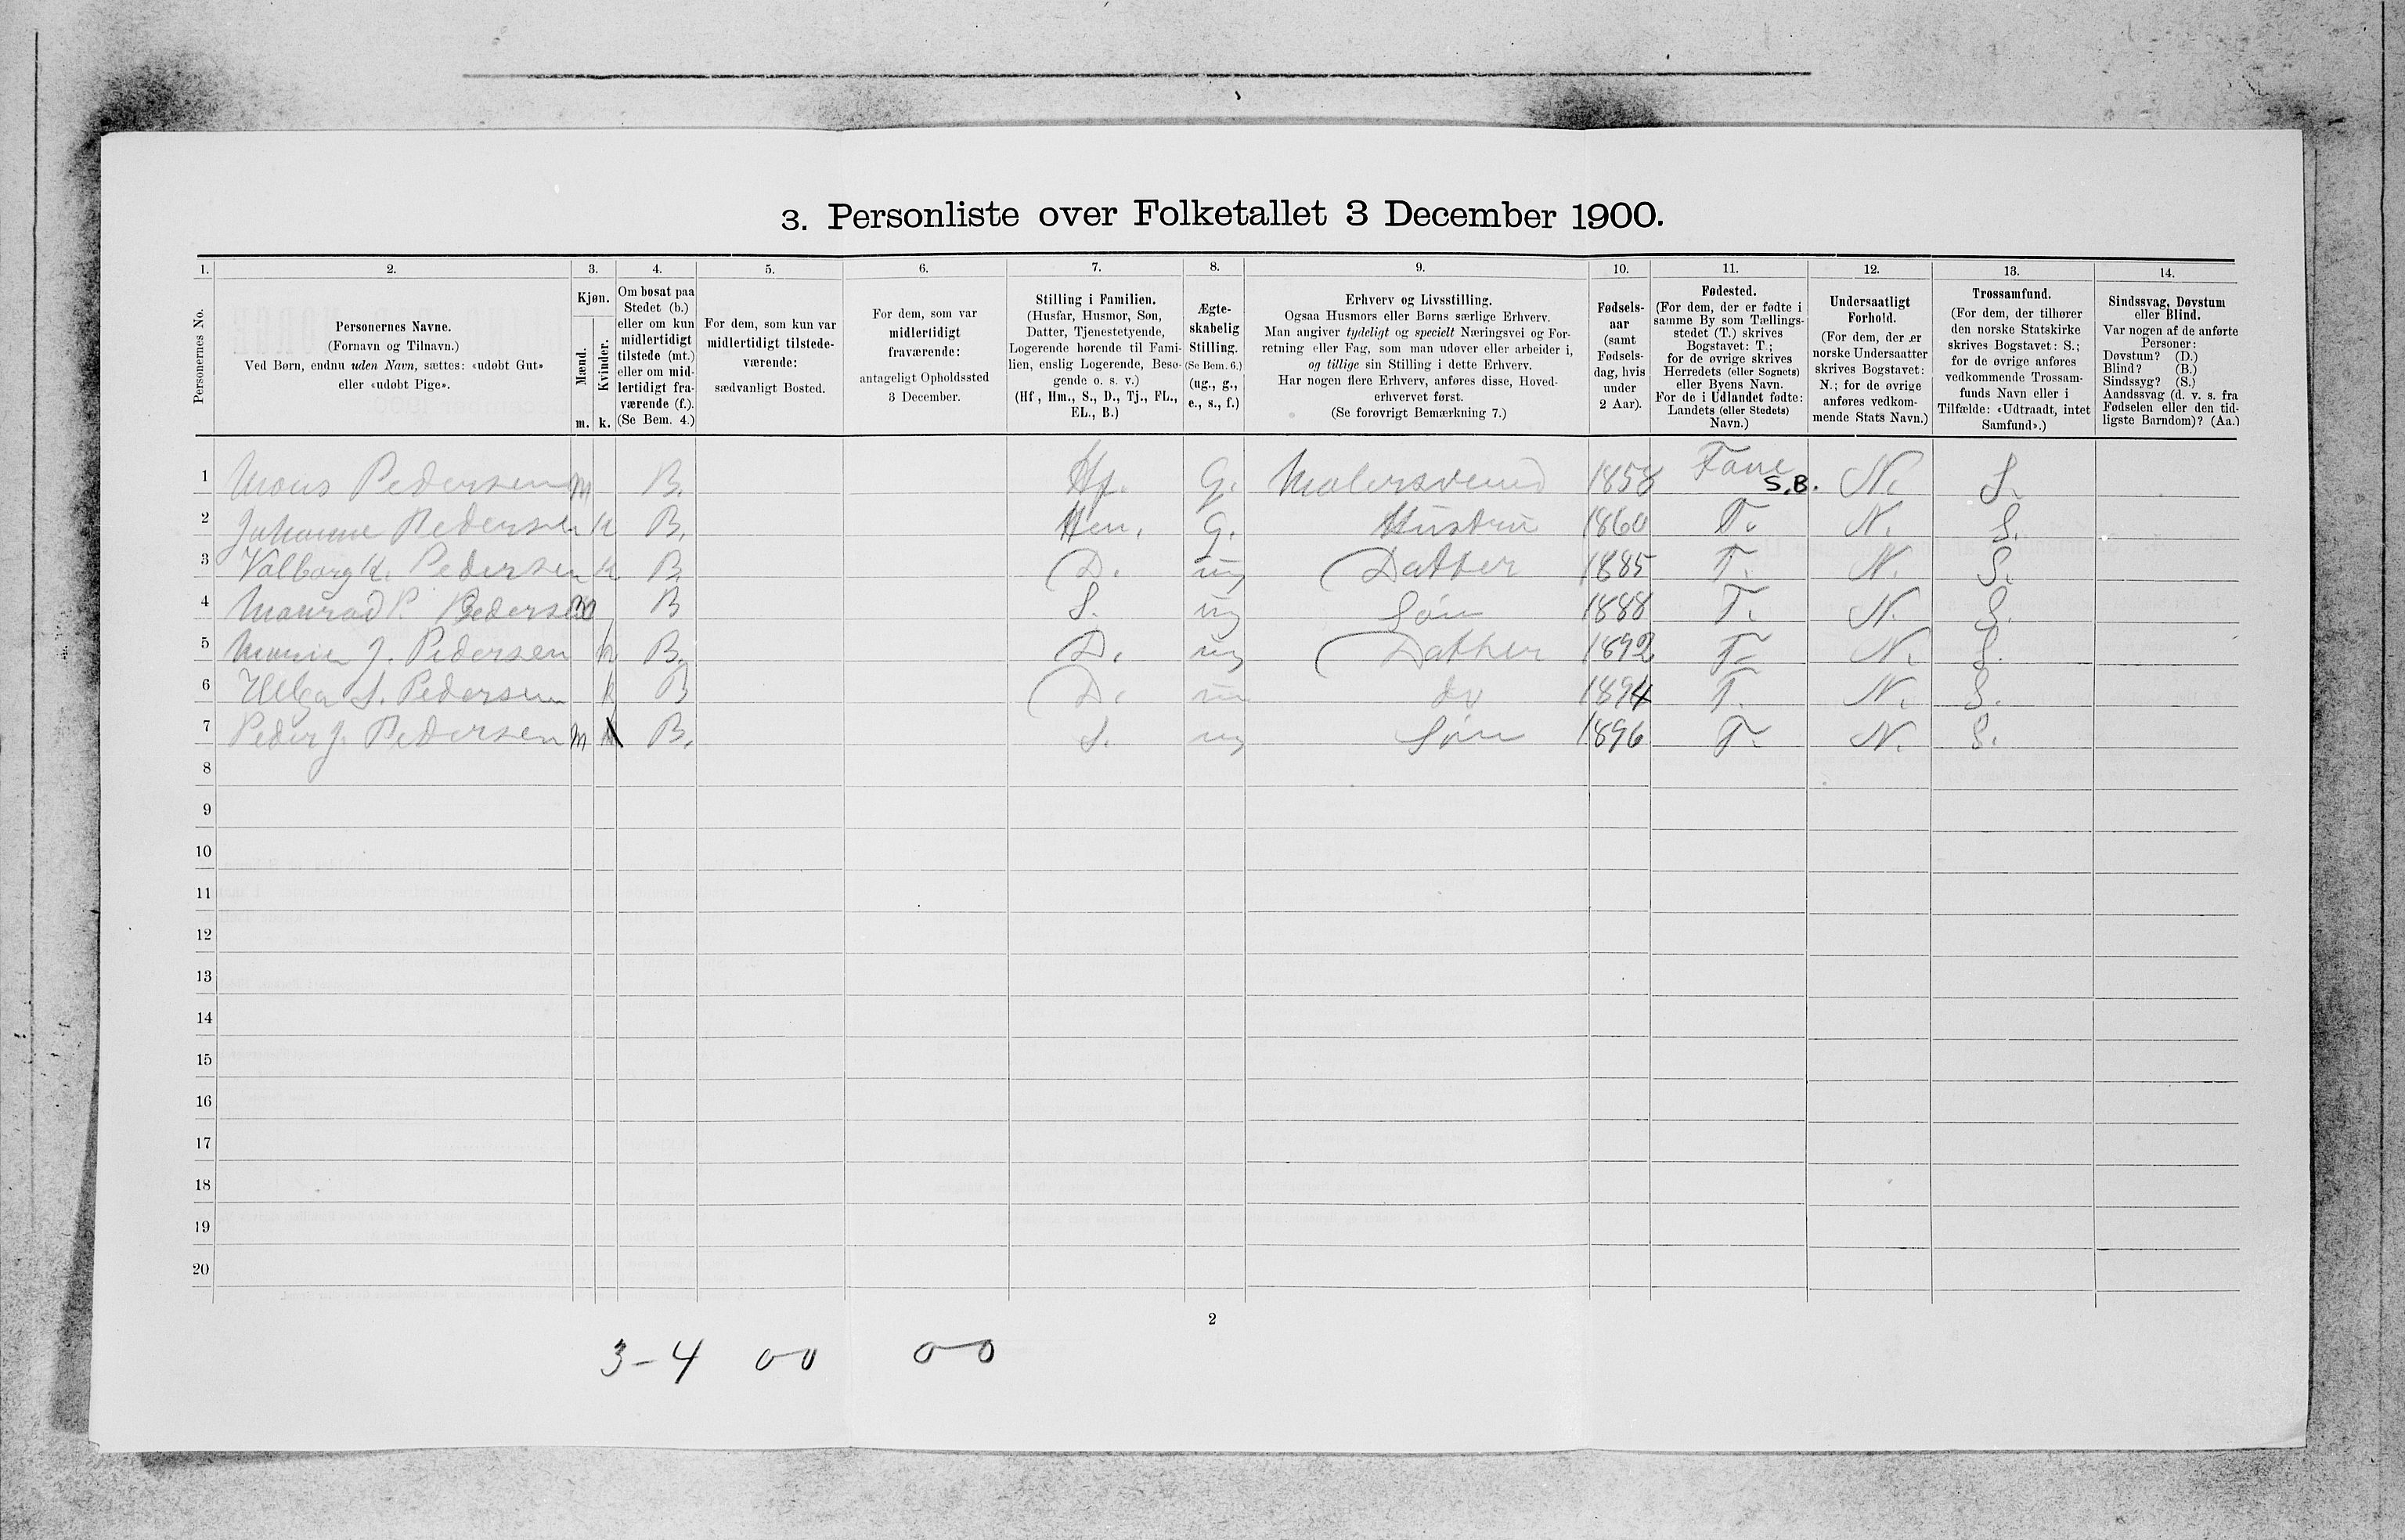 3. Personliste over Folketallet 3 December 1900.
1. 2. 3. 4. 5. 6. 7. 8. 9. 10. 11. 12. 13. 14.
Personernes No.
Personernes Navne.
(Fornavn og Tilnavn.)
Ved Børn, endnu uden Navn, sættes: «udøbt Gut»
eller «udøbt Pige».
Kjøn.
Mænd.
Kvinder.
m. k.
Om bosat paa
Stedet (b.)
eller om kun
midlertidigt
tilstede (mt.)
eller om mid-
lertidigt fra-
værende (f.).
(Se Bem. 4.)
For dem, som kun var
midlertidigt tilstede-
værende:
sædvanligt Bosted.
For dem, som var
midlertidigt
fraværende:
antageligt Opholdssted
3 December.
Stilling i Familien.
(Husfar, Husmor, Søn,
Datter, Tjenestetyende,
Logerende hørende til Fami-
lien, enslig Logerende, Besø-
gende o. s. v.)
(Hf., Hm., S., D., Tj., FL.,
EL., B.)
Ægte-
skabelig
Stilling.
(Se Bem. 6.)
(ug., g.,
e., s., f.)
Erhverv og Livsstilling.
Ogsaa Husmors eller Børns særlige Erhverv.
Man angiver tydeligt og specielt Næringsvei og For-
retning eller Fag, som man udøver eller arbeider i,
og tillige sin Stilling i dette Erhverv.
Har nogen flere Erhverv, anføres disse, Hoved-
erhvervet først.
(Se forøvrigt Bemærkning 7.)
Fødsels-
aar
(samt
Fødsels-
dag, hvis
under
2 Aar).
Fødested.
(For dem, der er fødte i
samme By som Tællings-
stedet (T.) skrives
Bogstavet: T.;
for de øvrige skrives
Herredets (eller Sognets)
eller Byens Navn.
For de i Udlandet fødte:
Landets (eller Stedets)
Navn.)
Undersaatligt
Forhold.
(For dem, der er
norske Undersaatter
skrives Bogstavet:
N.; for de øvrige
anføres vedkom-
mende Stats Navn.)
Trossamfund.
(For dem, der tilhører
den norske Statskirke
skrives Bogstavet: S.;
for de øvrige anføres
vedkommende Trossam-
funds Navn eller i
Tilfælde: «Udtraadt, intet
Samfund».)
Sindssvag, Døvstum
eller Blind.
Var nogen af de anførte
Personer:
Døvstum? (D.)
Blind? (B.)
Sindssyg? (S.)
Aandssvag (d. v. s. fra
Fødselen eller den tid-
ligste Barndom)? (Aa.)
1 Mons Pedersen m B. Hf. G. Malersvend 1858 Fane S.B. N. S.
2 Johanne Pedersen k B. Hm. G. Hustru 1860 T. N. S.
3 Valborg K. Pedersen k B. D. ug Datter 1885 T. N. S.
4 Monrad P. Pedersen m B S. ug Søn 1888 T. N. S.
5 J. Pedersen k B. D. ug Datter 1892 T. N. S.
6 S. Pedersen k B D. ug do 1894 T. N. S.
7 Peder J. Pedersen m B. S. ug Søn 1896 T. N. S.
8
9
10
11
12
13
14
15
16
17
18
19
20
2
3-4 00 00